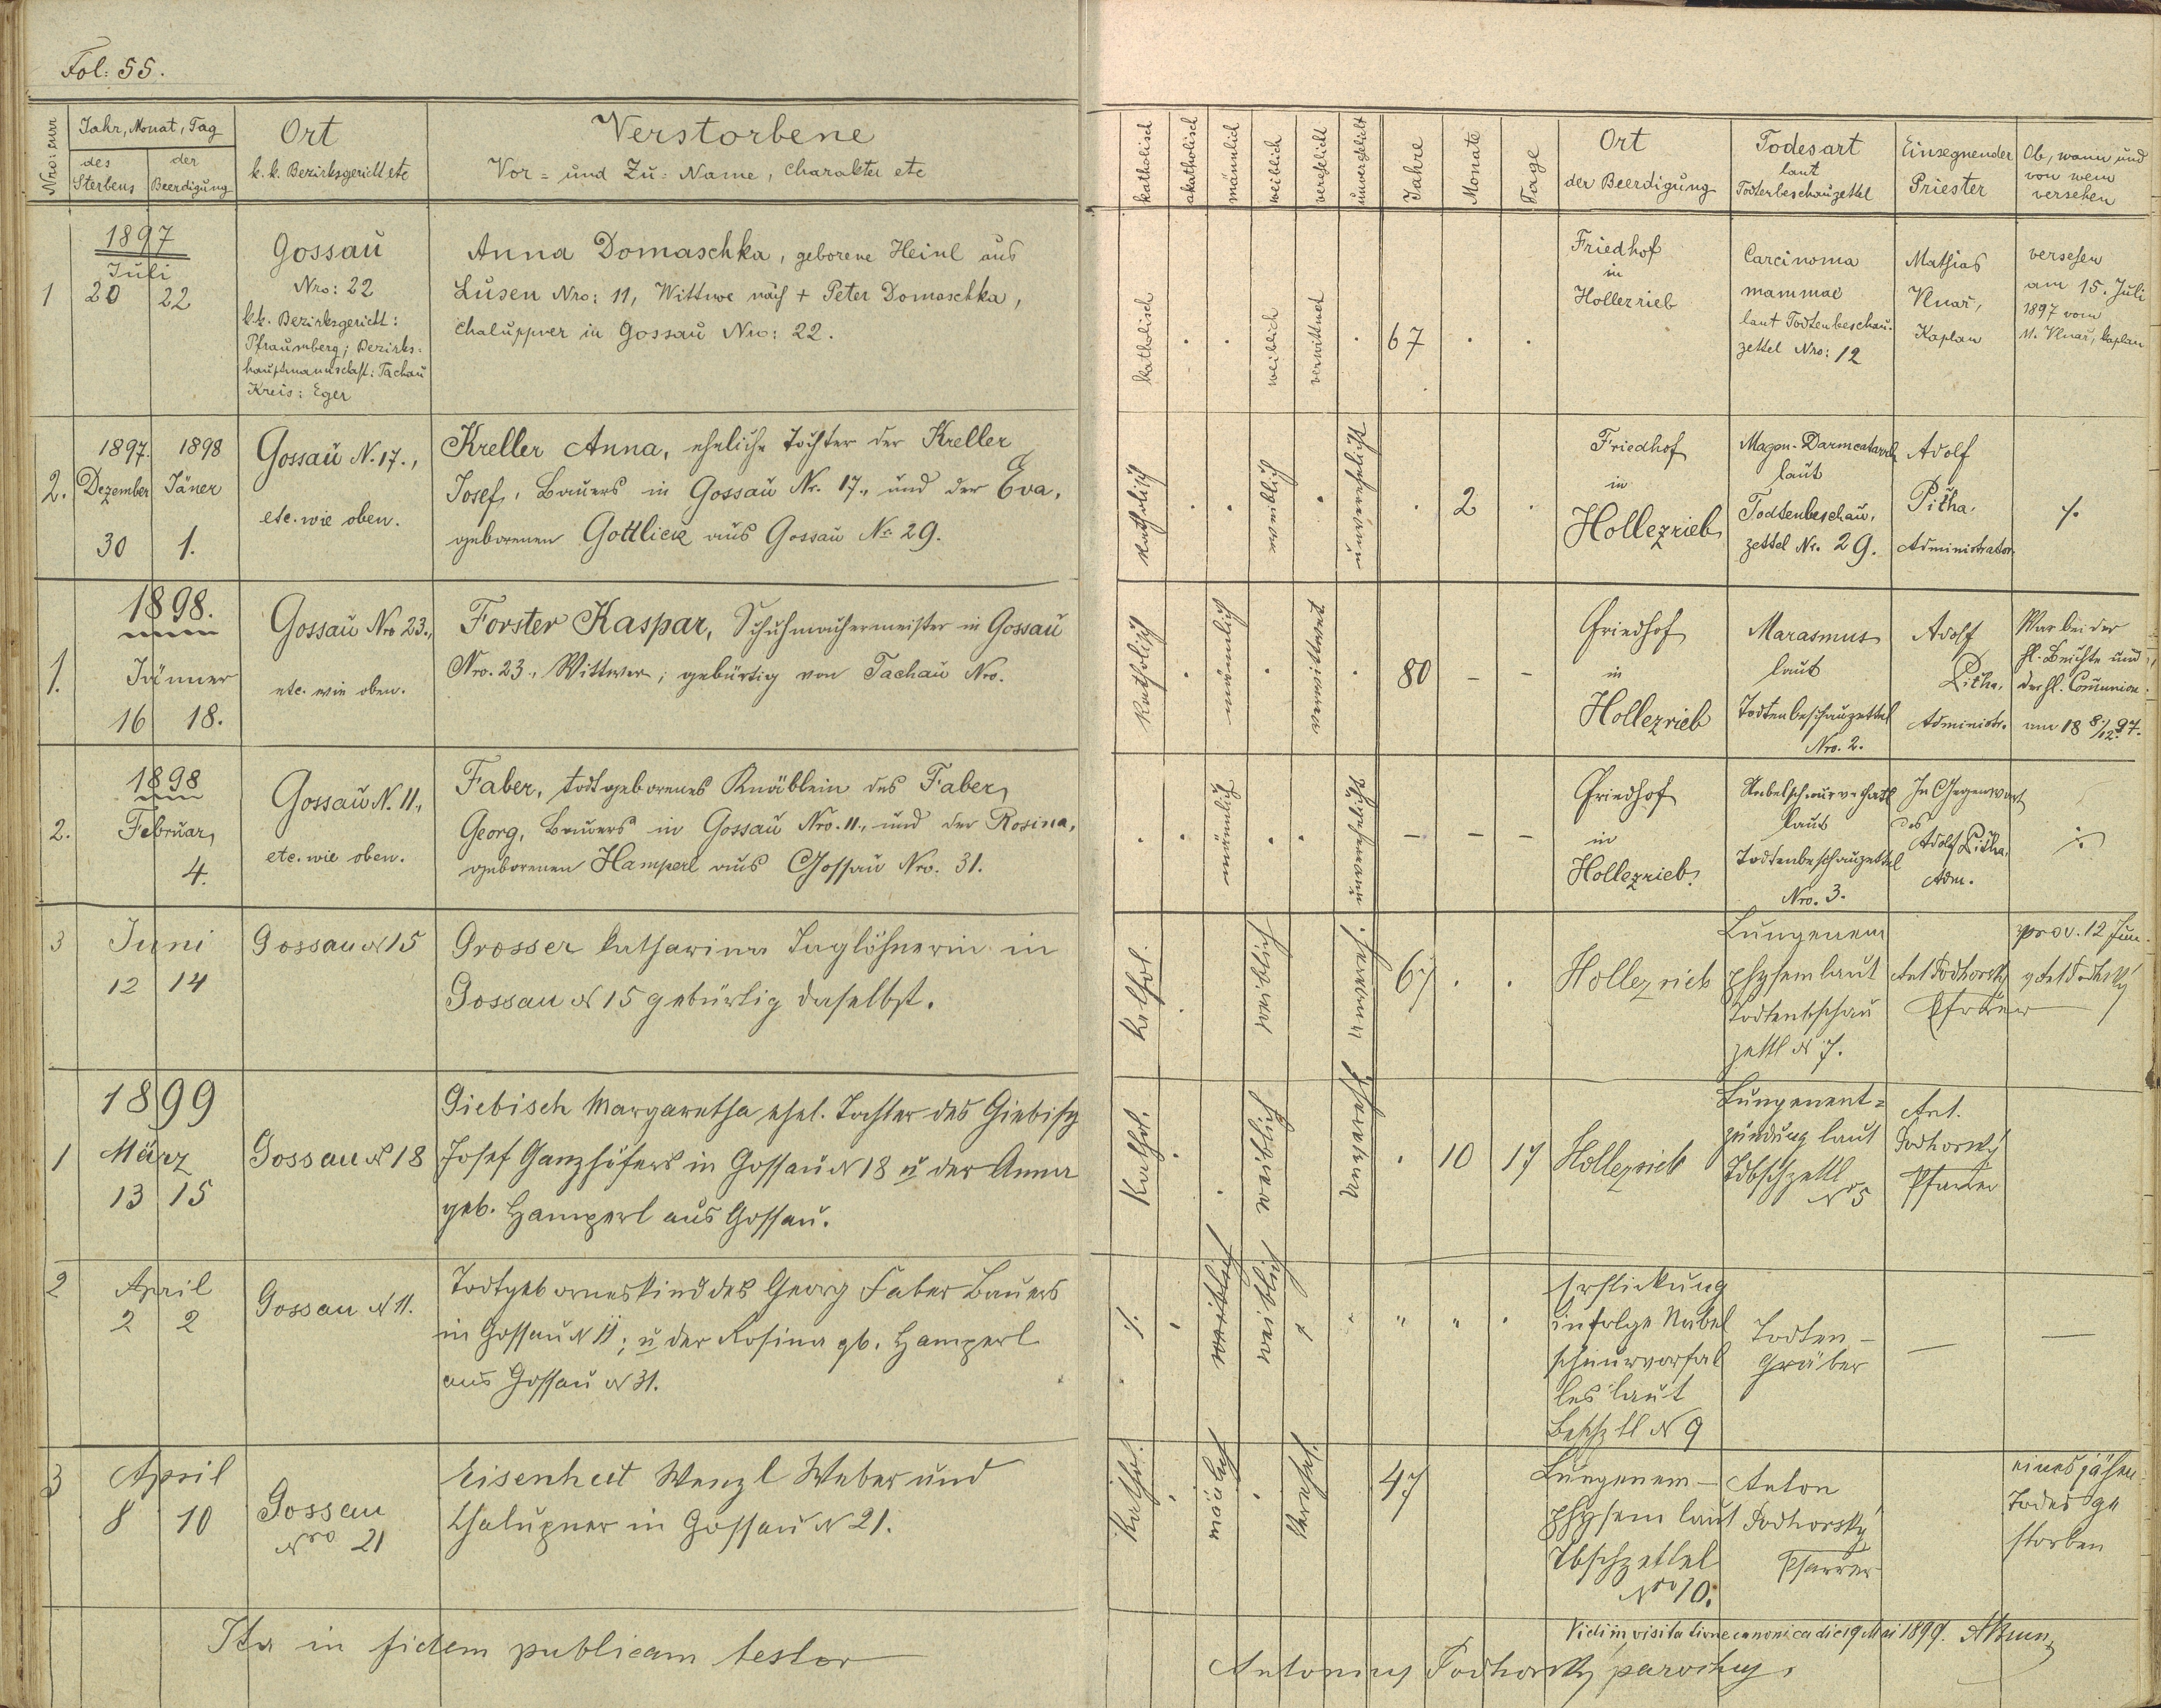 Fol: 55.
Nro: curr
Jahr, Monat, Tag
des Sterbens
der Beerdigung
Ort
k. k. Bezirksgericht etc
Verstorbene
Vor- und Zu-Name, Charakter etc
1
1897
Juli
20 22
Gossau
Nro: 22
k.k. Bezirksgericht:
Pfraumberg; Bezirks-
hauptmannschaft: Tachau
Kreis: Eger
Anna Domaschka, geborene Heinl aus
Lusen Nro: 11, Wittwe nach + Peter Domaschka,
Chaluppner in Gossau Nro: 22.
2.
1897. 1898
Dezember Jäner
30 1.
Gossau N. 17.,
etc. wie oben.
Kreller Anna, eheliche Tochter der Kreller
Josef, Bauers in Gossau Nr. 17., und der Eva,
geborenen Gottlick aus Gossau No 29.
1.
1898.
Jänner
16 18.
Gossau Nro 23.,
etc. wie oben.
Forster Kaspar, Schuhmachermeister in Gossau
Nro. 23., Wittwer; gebürtig von Tachau Nro.
2.
1898
Februar,
4.
Gossau N. 11.,
etc. wie oben.
Faber, todtgeborenes Knäblein des Faber,
Georg, Bauers in Gossau Nro. 11., und der Rosina,
geborenen Hamperl aus Gossau Nro. 31.
3
Juni
12 14
Gossau N 15
Grosser Katharina Taglöhnerin in
Gossau N 15 gebürtig daselbst.
1899
1
März
13 15
Gossau N 18
Giebisch Margaretha ehel. Tochter des Giebisch
Josef Ganzhöfers in Gossau N 18 u der Anna
geb. Hamperl aus Gossau.
2
April
2 2
Gossau N 11.
Todtgebornes Kind des Georg Faber Bauers
in Gossau N 11; u der Rosina gb. Hamperl
aus Gossau N 31.
3
April
8 10
Gossau
Nro 21
Eisenhut Wenzl Weber und
Chalupner in Gossau N 21.
Ita in fidem publicam testor
katholisch
akatholisch
männlich
weiblich
verehelicht
unverehelicht
Jahre
Monate
Tage
Ort
der Beerdigung
Todesart
laut
Todtenbeschauzettel
Einsegnender
Priester
Ob, wann und
von wem
versehen
katholisch
weiblich
verwittwet
67
Friedhof
in
Hollezrieb
Carcinoma
mammae
laut Todtenbeschau-
zettel Nro: 12
Mathias
Vlnař,
Kaplan
versehen
am 15. Juli
1897 vom
M. Vlnař, Kaplan
katholisch
weiblich
unverehelicht
2
Friedhof
in
Hollezrieb
Magen-Darmcatarrh
laut
Todtenbeschau-
zettel Nr. 29.
Adolf
Pitha,
Administrator.
katholisch
männlich
verwittwet
80 - -
Friedhof
in
Hollezrieb
Marasmus
laut
Todtenbeschauzettel
Nro. 2.
Adolf
Pitha,
Administr.
War bei der
hl. Beichte und
der hl. Communion
am 18 8/12. 97.
männlich
unverehelicht
- - -
Friedhof
in
Hollezrieb.
laut
Todtenbeschauzettel
Nro. 3.
In Gegenwart
des
Adolf Pitha,
Adm.
Kathol.
weiblich
unvereh.
67
Hollezrieb
Lungenem
physem laut
Todtenbschau
zettl N 7.
Ant Podhorsky
Pfarrer
prov. 12 Jun.
Kathol.
weiblich
unvereh.
10 17
Hollezrieb
Lungenent-
zündung laut
Tdbschzettl
No 5
Ant.
Podhorský
Pfarrer
weiblich
weiblich
Erstickung
infolge Nabel
schnurvorfal
les laut
Bschztl N 9
Todten-
gräber
—
—
Kathol.
mänlich
Verehel.
47
Lungenem-
physem laut
Tbschzettel
Nro 10.
Anton
Podhorský
Pfarrer
eines jähen
Todes ge
storben
Vidi in visitatione canonica die 19 Mai 1899.
Antonius Podhorsky parochus